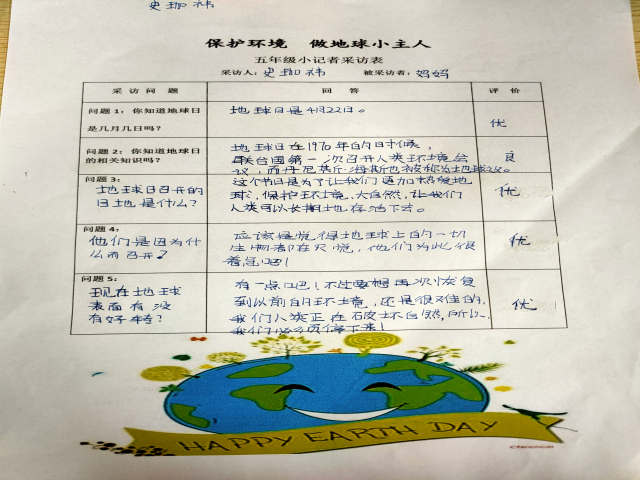 史珈祎
保护环境 做地球小主人
五年级小记者采访表
采访人：史珈祎 被采访者：妈妈
采访问题 回答 评价
问题1：你知道地球日
是几月几日吗？
地球日是4月22日。
优
问题2：你知道地球日
的相关知识吗？
地球日在1970年的时候，
联合国第一次召开人类环境会
议，而丹尼斯·海斯也被称为地球
良
问题3：
地球日召开的
目地是什么？
这个节日是为了让我们更加热爱地
球，保护环境，大自然，让我们
人类可以长期地存活下去。
优
问题4：
他们是因为什
么而召开？
应该是觉得地球上的一切
生物都在灭绝，他们为此很
着急吧！
优
问题5：
现在地球
表面有没
有好转？
有一点吧！不过要想再次恢复
到以前的环境，还是很难的，
我们人类正在破坏自然，所以，
我们必须停下来！
优
HAPPY EARTH DAY